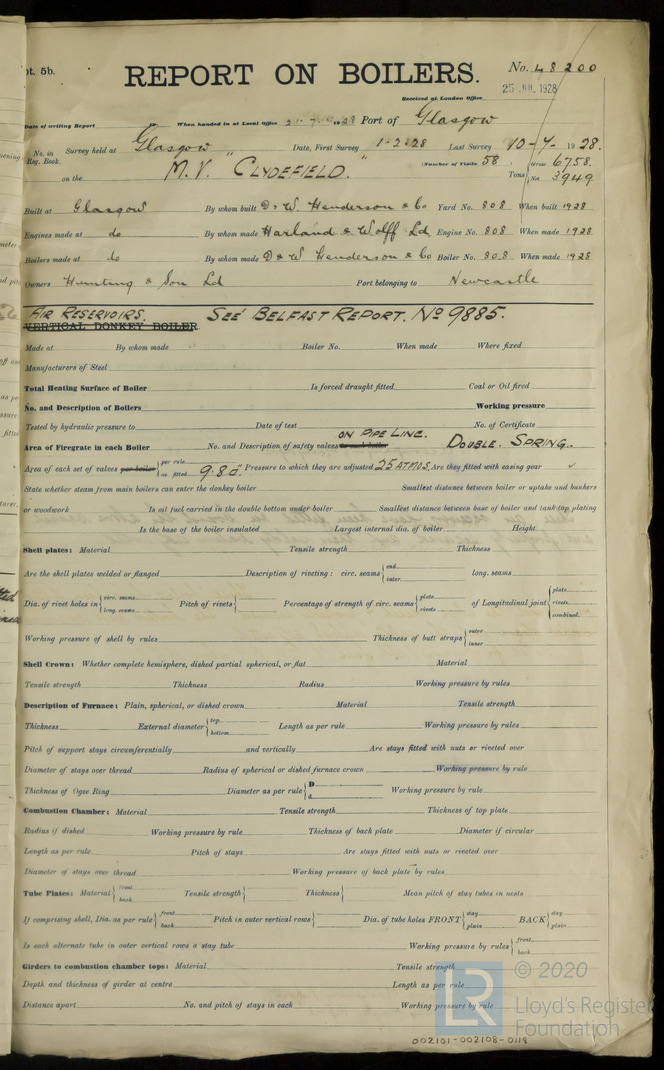 pt. 5b.
REPORT ON BOILERS.
No. 48200
25 JUL 1928
Received at London Office
Date of writing Report When handed in at Local Office 19 28 Port of Glasgow
No. in Survey held at Glasgow Date, First Survey 1-2-28 Last Survey 10-7-1928.
Reg. Book.
(Number of Visits 58
on the M.V. "CLYDEFIELD." Tons { Gross 6758. Net 3949
Built at Glasgow By whom built D & W. Henderson & Co Yard No. 808 When built 1928
Engines made at do By whom made Harland & Wolff Ld. Engine No. 808 When made 1928
Boilers made at do By whom made D & W Henderson & Co Boiler No. 808 When made 1928
Owners Hunting & Son Ld Port belonging to Newcastle
AIR RESERVOIRS. SEE BELFAST REPORT. No 9885.
VERTICAL DONKEY BOILER
Made at By whom made Boiler No. When made Where fixed
Manufacturers of Steel
Total Heating Surface of Boiler Is forced draught fitted Coal or Oil fired
No. and Description of Boilers Working pressure
Tested by hydraulic pressure to Date of test No. of Certificate
Area of Firegrate in each Boiler No. and Description of safety valves to each boiler ON PIPE LINE. DOUBLE. SPRING.
Area of each set of valves per boiler { per rule as fitted 9.80" Pressure to which they are adjusted 25 ATMOS. Are they fitted with easing gear ✓
State whether steam from main boilers can enter the donkey boiler Smallest distance between boiler or uptake and bunkers
or woodwork Is oil fuel carried in the double bottom under boiler Smallest distance between base of boiler and tank top plating
Is the base of the boiler insulated Largest internal dia. of boiler Height
Shell plates: Material Tensile strength Thickness
Are the shell plates welded or flanged Description of riveting: circ. seams { end inter. long. seams
Dia. of rivet holes in { circ. seams long. seams Pitch of rivets { Percentage of strength of circ. seams { plate rivets of Longitudinal joint { plate rivets combined.
Working pressure of shell by rules Thickness of butt straps { outer inner
Shell Crown: Whether complete hemisphere, dished partial spherical, or flat Material
Tensile strength Thickness Radius Working pressure by rules
Description of Furnace: Plain, spherical, or dished crown Material Tensile strength
Thickness External diameter { top bottom Length as per rule Working pressure by rules
Pitch of support stays circumferentially and vertically Are stays fitted with nuts or riveted over
Diameter of stays over thread Radius of spherical or dished furnace crown Working pressure by rule
Thickness of Ogee Ring Diameter as per rule { D d Working pressure by rule
Combustion Chamber: Material Tensile strength Thickness of top plate
Radius if dished Working pressure by rule Thickness of back plate Diameter if circular
Length as per rule Pitch of stays Are stays fitted with nuts or riveted over
Diameter of stays over thread Working pressure of back plate by rules
Tube Plates: Material { front back Tensile strength { Thickness { Mean pitch of stay tubes in nests
If comprising shell, Dia. as per rule { front back Pitch in outer vertical rows { Dia. of tube holes FRONT { stay plain BACK { stay plain
Is each alternate tube in outer vertical rows a stay tube Working pressure by rules { front back
Girders to combustion chamber tops: Material Tensile strength
Depth and thickness of girder at centre Length as per rule
Distance apart No. and pitch of stays in each Working pressure by rule
© 2020
LR Lloyd's Register
Foundation
002101-002108-0119